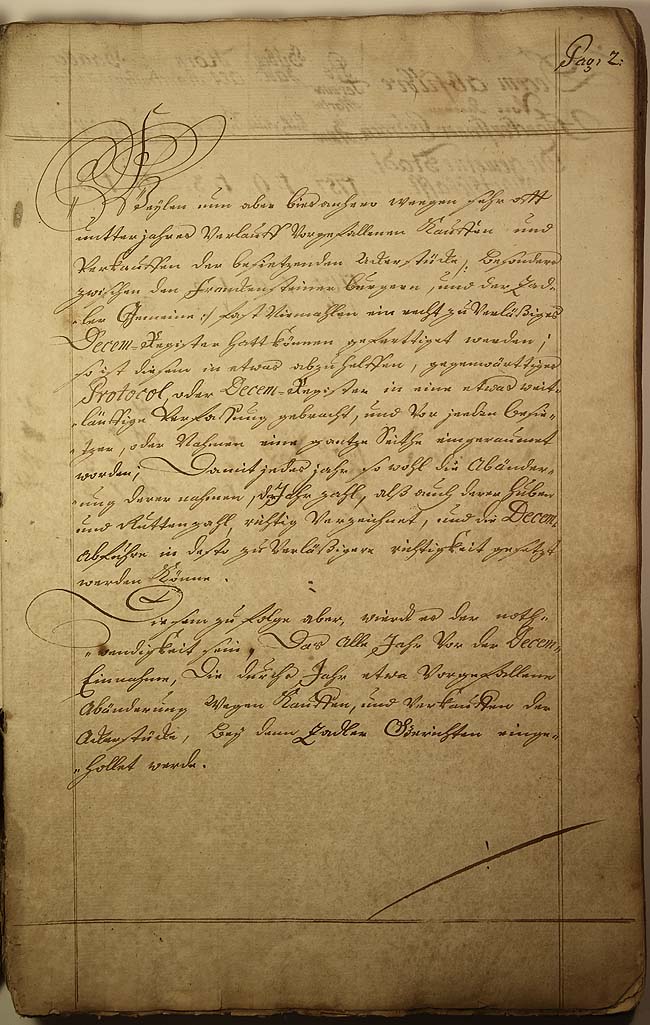 Pag: 2:
Weylen nun aber bies anhero weegen sehr oft
untter jahres Verlauff Vorgefallenen Kauffen und
Verkauffen der besietzenden Ackerstücke, /: besonders
zwischen den Franckensteiner bürgern, und der Zad-
-ler Gemeine :/ fast Niemahlen ein recht zu Verläßiges
Decem-Register hatt können geferttiget werden;
so ist diesem in etwas abzuhelffen, gegenwärttiges
Protocol, oder Decem-Register in eine etwas weit-
-läufftige Verfassung gebracht, und Vor jeden besie-
-tzer, oder Nahmen eine gantze Seithe eingeraumet
worden; Damit jedes jahr so wohl die Abänder-
-ung derer nahmen, der Jahr zahl, alß auch derer Huben
und Rutten zahl, richtig Verzeichnet, und die Decem
Abführe in desto zu Verläßigere richtigkeit gesetzt
werden Könne.
Diesem zu folge aber, wierdt es der noth-
-wendigkeit sein, Das Alle Jahr Vor der Decem-
Einnahme, Die durchs Jahr etwa Vorgefallene
Abänderung Wegen Kauffen, und Verkauffen der
Ackerstücke, Bey denn Zadler Gerichten einge-
-hollet werde.